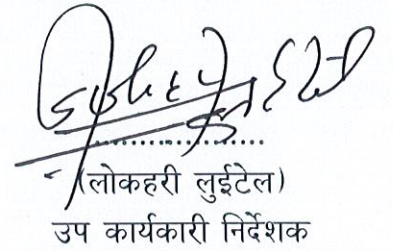 ..................
(लोकहरी लुईटेल)
उप कार्यकारी निर्देशक